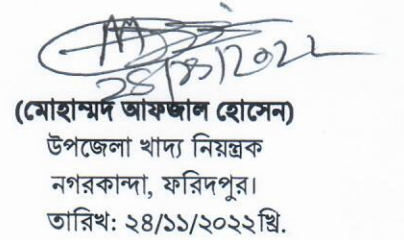 (মোহাম্মদ আফজাল হোসেন)
উপজেলা খাদ্য নিয়ন্ত্রক
নগরকান্দা, ফরিদপুর।
তারিখ: ২৪/১১/২০২২খ্রি.